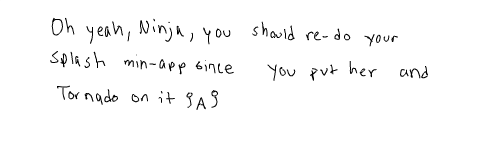 Oh yeah, Ninja, you should re-do your
Splash min-app since you put her and
Tornado on it {A}